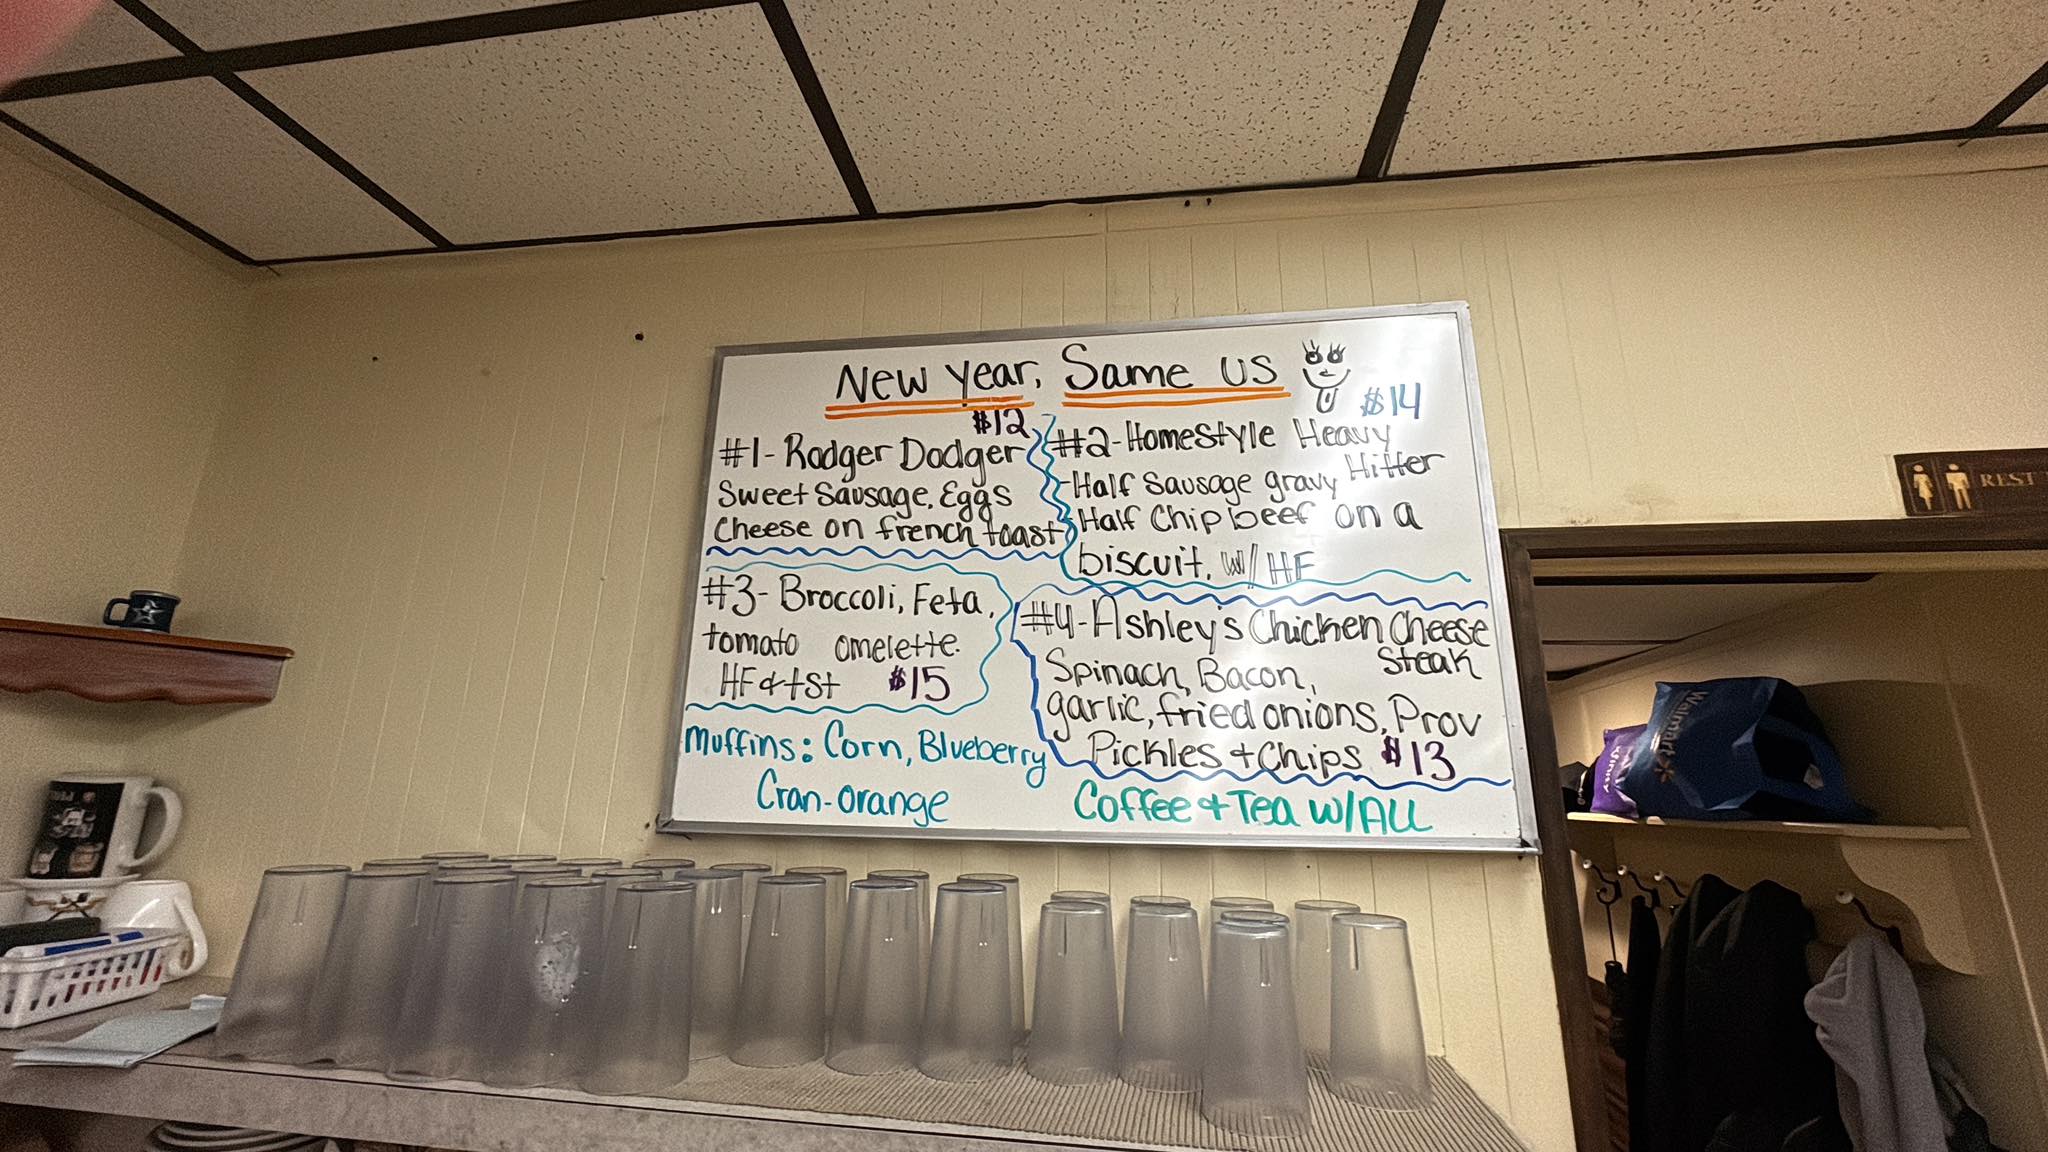 New Year, Same US
$12
#1- Rodger Dodger
Sweet Sausage, Eggs
Cheese on french toast
$14
#2- Homestyle Heavy
Hitter
-Half Sausage gravy
Half Chip beef on a
biscuit, w/ HF
#3- Broccoli, Feta,
tomato omelette.
HF & tst $15
#4- Ashley's Chicken Cheese
Steak
Spinach, Bacon,
garlic, fried onions, Prov
Pickles + Chips $13
Muffins: Corn, Blueberry
Cran-orange
Coffee + Tea W/ALL
REST
Walmart